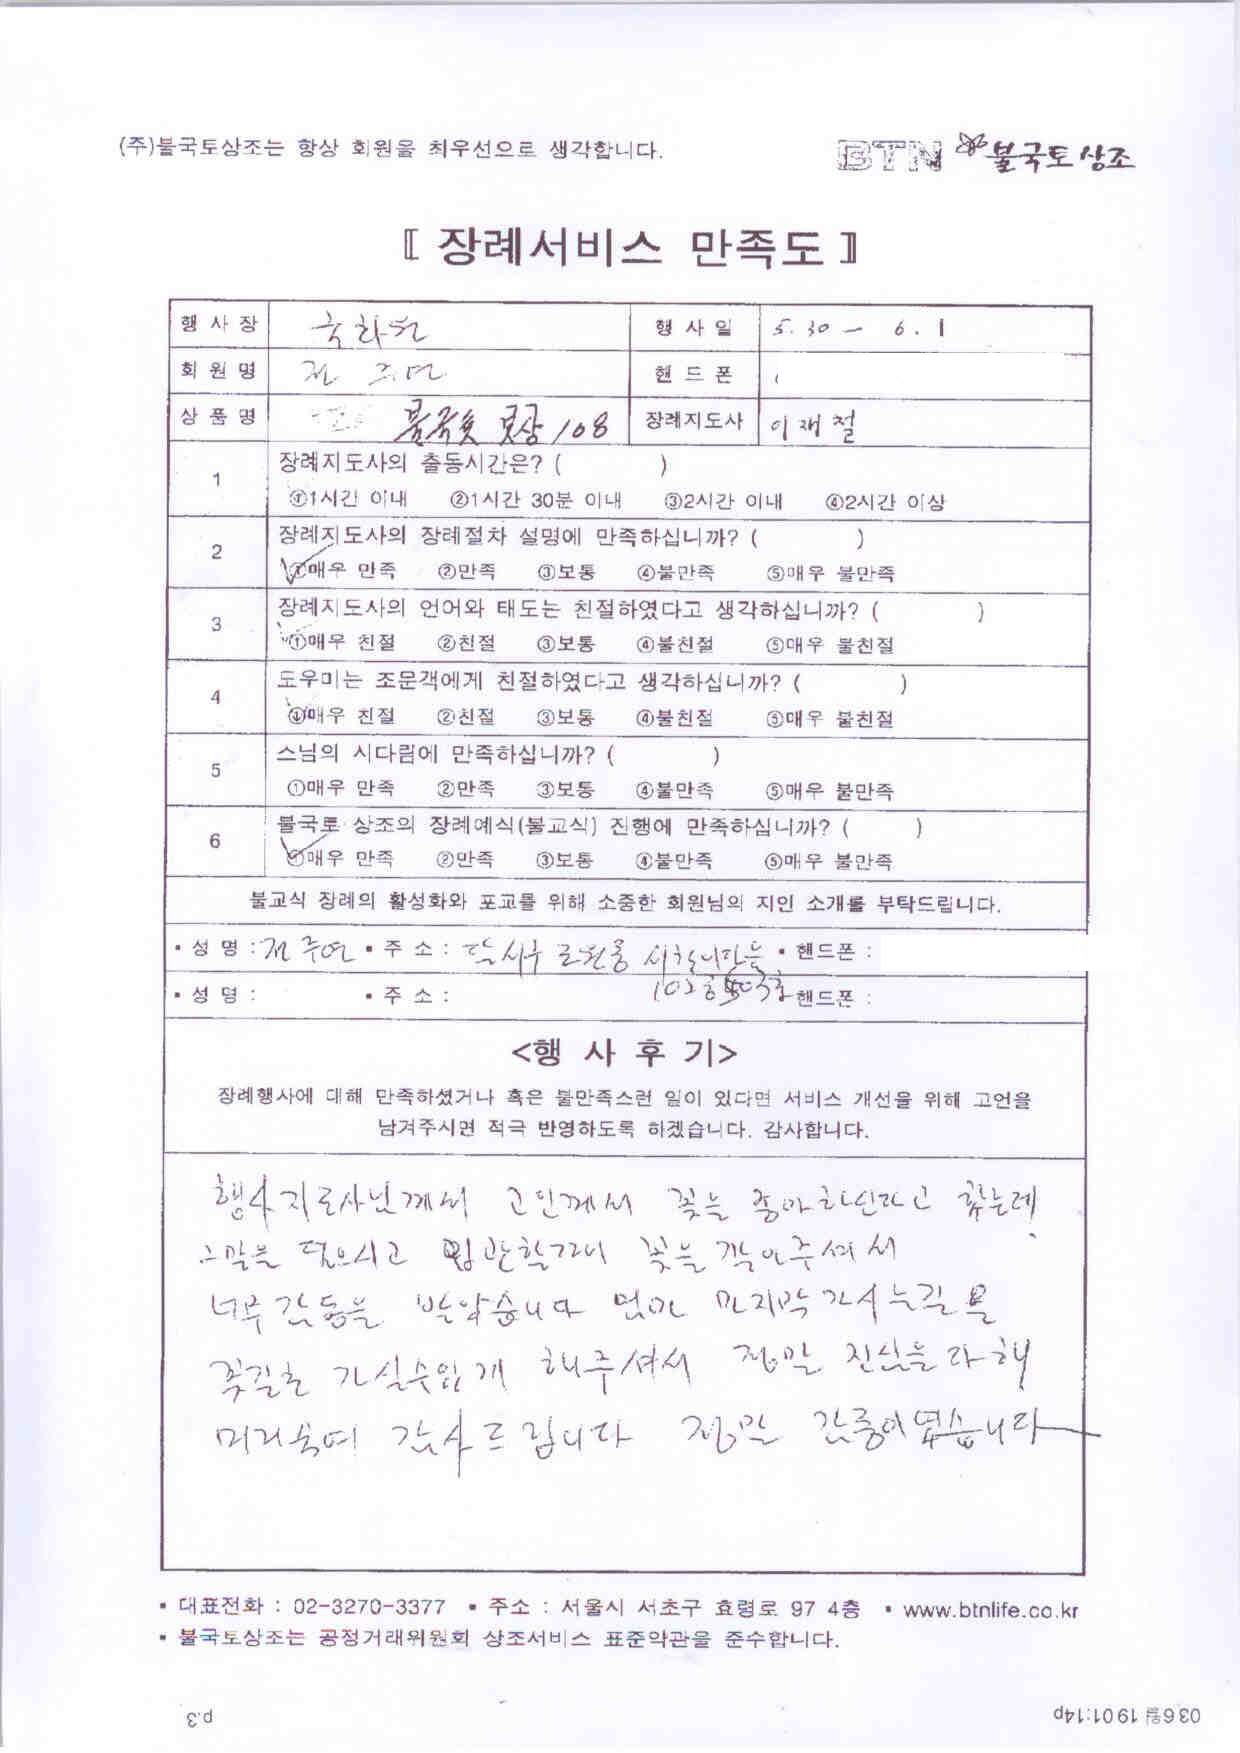 (주)불국토상조는 항상 회원을 최우선으로 생각합니다.
BTN 불국토상조
〖 장례서비스 만족도 〗
행 사 장 국화원 행 사 일 5. 30 - 6. 1
회 원 명 핸 드 폰
상 품 명 108 장례지도사 이재철
1 장례지도사의 출동시간은? ( )
①1시간 이내 ②1시간 30분 이내 ③2시간 이내 ④2시간 이상
2 장례지도사의 장례절차 설명에 만족하십니까? ( )
①매우 만족 ②만족 ③보통 ④불만족 ⑤매우 불만족
3 장례지도사의 언어와 태도는 친절하였다고 생각하십니까? ( )
①매우 친절 ②친절 ③보통 ④불친절 ⑤매우 불친절
4 도우미는 조문객에게 친절하였다고 생각하십니까? ( )
①매우 친절 ②친절 ③보통 ④불친절 ⑤매우 불친절
5 스님의 시다림에 만족하십니까? ( )
①매우 만족 ②만족 ③보통 ④불만족 ⑤매우 불만족
6 불국토 상조의 장례예식(불교식) 진행에 만족하십니까? ( )
①매우 만족 ②만족 ③보통 ④불만족 ⑤매우 불만족
불교식 장례의 활성화와 포교를 위해 소중한 회원님의 지인 소개를 부탁드립니다.
• 성 명 : • 주 소 : 달서구 • 핸드폰 :
• 성 명 : • 주 소 : 핸드폰 :
<행 사 후 기>
장례행사에 대해 만족하셨거나 혹은 불만족스런 일이 있다면 서비스 개선을 위해 고언을
남겨주시면 적극 반영하도록 하겠습니다. 감사합니다.
행사지도사님께서 고인께서 꽃을 좋아하신다고 했는데
그말을 들으시고 입관할때 꽃을
너무 감동을 받았습니다 엄마 마지막 가시는길을
꽃길로 가실수있게 해주셔서 정말 진심을 다해
머리숙여 감사드립니다 정말 감동이였습니다
• 대표전화 : 02-3270-3377 • 주소 : 서울시 서초구 효령로 97 4층 • www.btnlife.co.kr
• 불국토상조는 공정거래위원회 상조서비스 표준약관을 준수합니다.
p.3 03 6월 19 01:14p